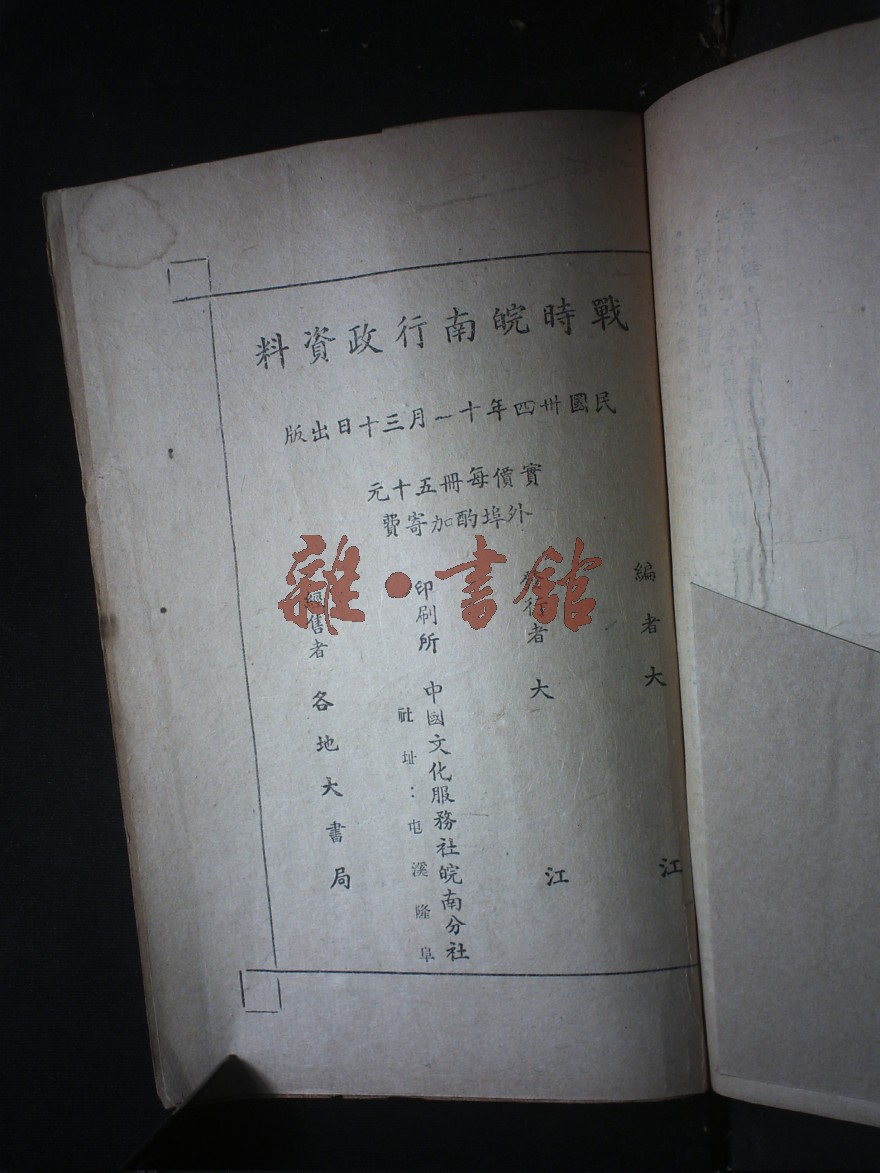 戰時皖南行政資料
民國卅四年十一月三十日出版
實價每冊五十元
外埠酌加寄費
編者大江
發行者大江
印刷所中國文化服務社皖南分社
社址：屯溪隆阜
經售者各地大書局
雜·書館